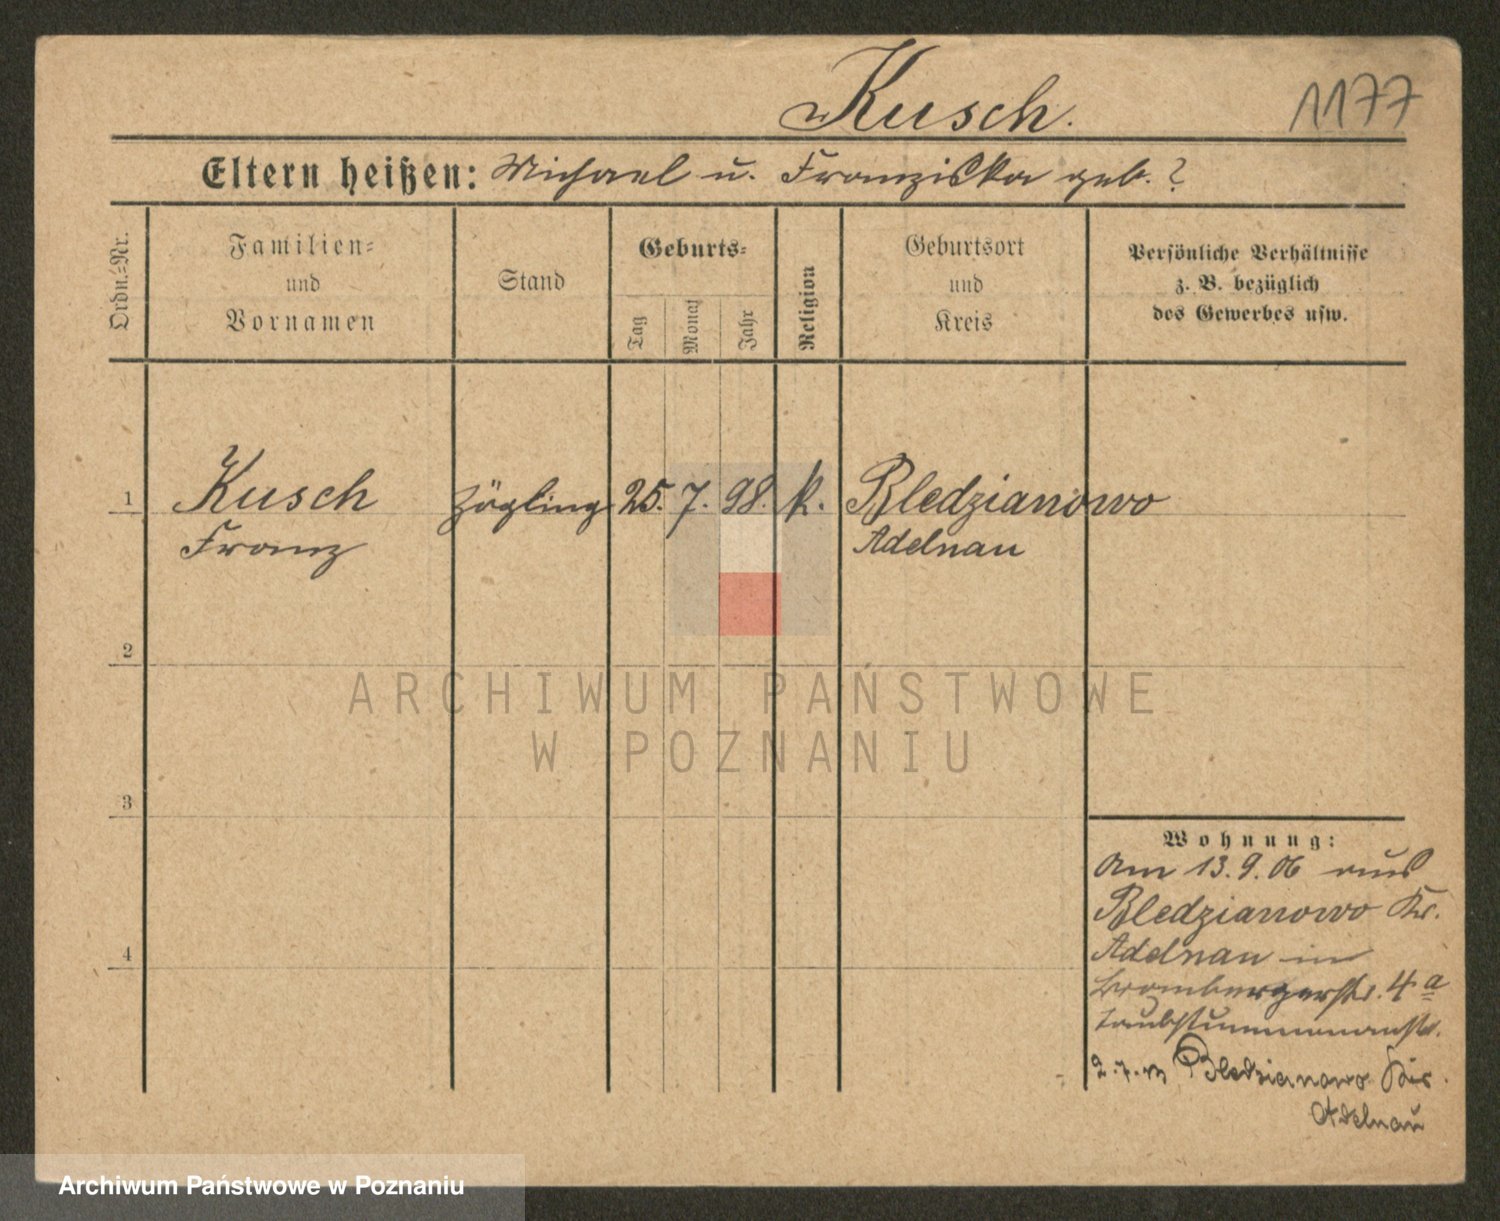 Kusch.
1177
Eltern heißen: Michael u. Franziska geb. ?
Ordn.-Nr.
Familien-
und
Vornamen
Stand
Geburts-
Tag
Monat
Jahr
Religion
Geburtsort
und
Kreis
Persönliche Verhältnisse
z. B. bezüglich
des Gewerbes usw.
1 Kusch Zögling 25. 7. 98. k. Bledzianowo
Franz Adelnau
2
ARCHIWUM PAŃSTWOWE
W POZNANIU
3
Wohnung:
Am 13.9.06 aus
Bledzianowo Kr.
Adelnau in
4
Brombergerstr. 4a
Taubstummenanst.
2.7.13 Bledzianowo Krs.
Adelnau
Archiwum Państwowe w Poznaniu